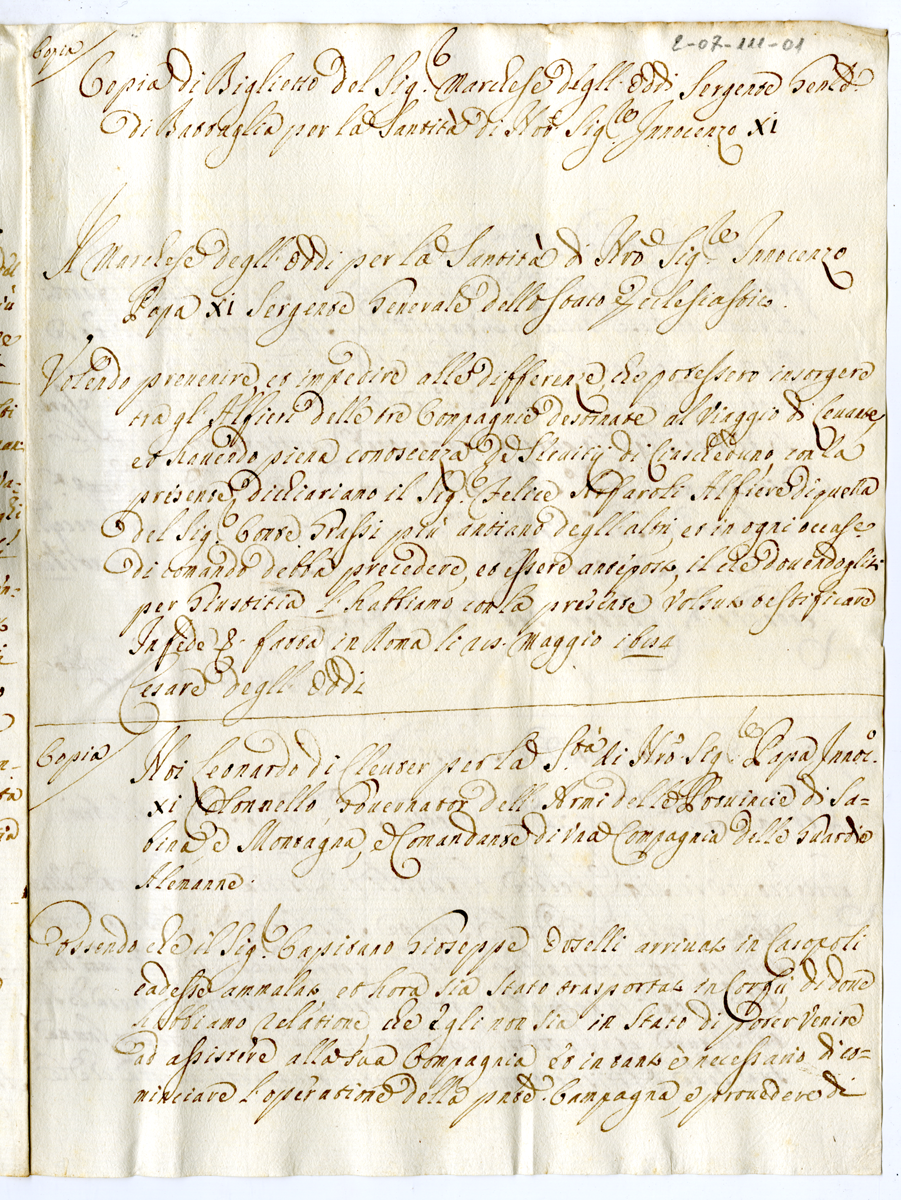 Copia
2-07-111-01
Copia di Biglietto del Sig.r Marchese degll. Oddi Sergente Gen.le
di Battaglia per la Santità di Nro Sig.re Innocenzo XI
Il Marchese degll. Oddi per la Santità di Nrò Sig.re Innocenzo
Papa XI Sergente Generale dello Stato Ecclesiastico.
Volendo prevenire, et impedire alle differenze, che potessero insorgere
tra gl'Alfieri delle tre Compagnie destinate al Viaggio di Levante,
et havendo piena conoscenza de di Ciascheduno con la
presente, dichiariamo il Sig.r Felice Alfiere di quella
del Sig.r Conte Grassi più antiano degll'altri, et in ogni occase.
di comando debba precedere, et essere anteposto, il che dovendogli
per Giustitia l'habbiamo con la presente voluto testificare
In fede &. fatta in Roma li Maggio 1684
Cesare degll. Oddi
Copia
Noi Leonardo di Cleuter per la S.tà di Nrò Sig.re Papa Innoc.
XI Colonnello, Governator dell'Armi delle Provincie di Sa-
bina, e Montagna, e Comandante di una Compagnia delle Guardie
Alemanne.
Essendo che il Sig.r Capitano Gioseppe Doselli arrivato in
cadesse ammalato, et hora sia stato trasportato in Corfù, di dove
habbiamo relatione che Egli non sia in stato di poter venire
ad assistere alla sua Compagnia et in tanto è necessario di co-
minciare l'operatione della pnte Campagna, e provedere di